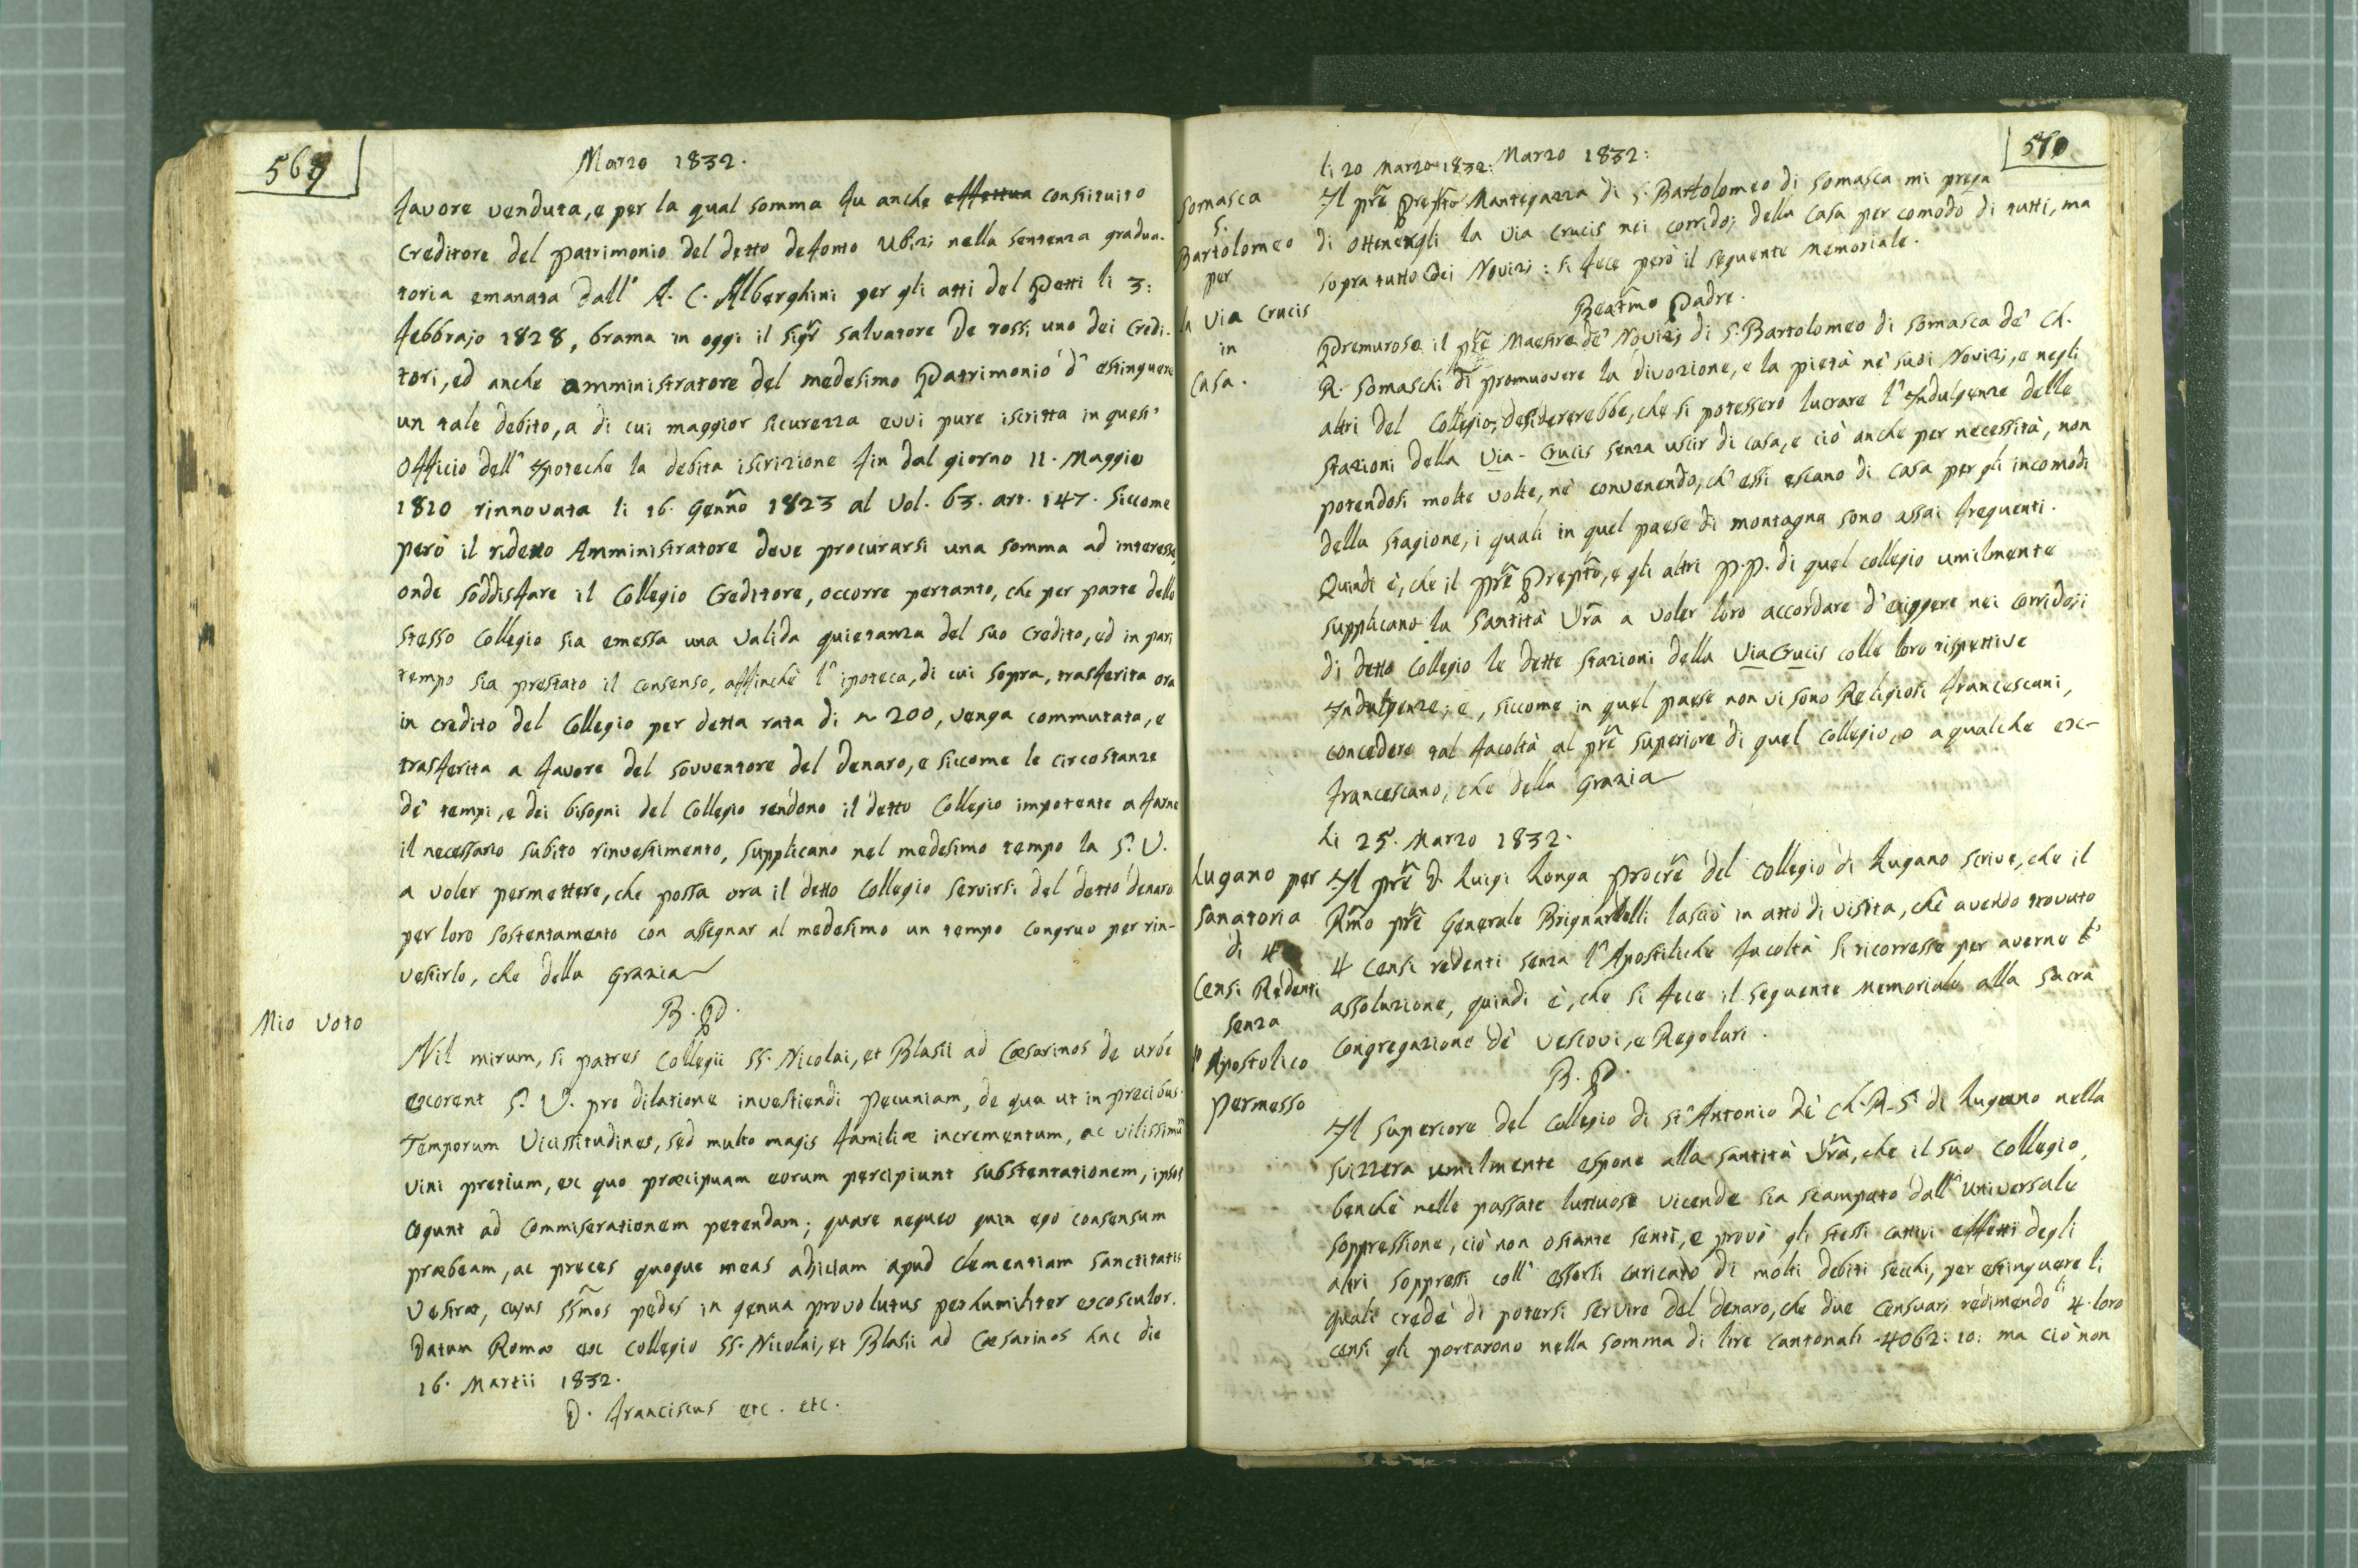 569
Marzo 1832.
favore venduta, e per la qual somma fu anche effettua constituito
Creditore del patrimonio del detto defonto Ubizi nella sentenza gradua-
toria emanata dall' A. C. Alberghini per gli atti del Petti li 3:
febbrajo 1828, brama in oggi il sigr̃ Salvatore De rossi uno dei Credi-
tori, ed anche amministratore del medesimo Patrimonio d' estinguere
un tale debito, a di cui maggior sicurezza evvi pure iscritta in quest'
Officio dell' Ypoteche la debita iscrizione fin dal giorno 11. Maggio
1810 rinnovata li 16. Genño 1823 al Vol. 63. art. 147. Siccome
però il ridetto Amministratore deve procurarsi una somma ad interesse,
onde soddisfare il Collegio Creditore, occorre pertanto, che per parte dello
stesso Collegio sia emessa una valida quietanza del suo Credito, ed in pari
tempo sia prestato il consenso, affinchè l' ipoteca, di cui sopra, trasferita ora
in credito del Collegio per detta rata di ~ 200, venga commutata, e
trasferita a favore del sovventore del denaro, e siccome le circostanze
de' tempi, e dei bisogni del Collegio rendono il detto Collegio impotente a farne
il necessario subito rinvestimento, supplicano nel medesimo tempo la S. V.
a voler permettere, che possa ora il detto Collegio servirsi del detto denaro
per loro sostentamento con assegnar al medesimo un tempo congruo per rin-
vestirlo, che della Grazia
B. P.
Mio Voto
Nil mirum, si patres Collegii SS. Nicolai, et Blasii ad Cæsarinos de urbe
exorent S. V. pro dilatione investiendi pecuniam, de qua ut in precibus.
Temporum Vicissitudines, sed multo magis familiæ incrementum, ac vilissimũ
vini pretium, ex quo præcipuam eorum percipiunt substentationem, ipsos
cogunt ad commiserationem petendam; quare nequeo quin ego consensum
præbeam, ac preces quoque meas adiiciam apud clementiam Sanctitatis
Vestræ, cujus SSm̃os pedes in genua provolutus perhumiliter exosculor.
Datum Romæ ex Collegio SS. Nicolai, et Blasii ad Cæsarinos hac die
16. Martii 1832.
D. Franciscus etc. etc.
570
li 20 Marzo 1832: Marzo 1832:
Somasca
S.
Bartolomeo
per
la Via Crucis
in
Casa.
Il prẽ Prept̃o Mantegazza di S. Bartolomeo di Somasca mi prega
di ottenergli la Via Crucis nei corridoj della Casa per comodo di tutti, ma
sopra tutto dei Novizj: si fece però il seguente Memoriale.
Beatm̃o Padre.
Premuroso il prẽ Maestro de' Novizj di S. Bartolomeo di Somasca de' Ch.
R. Somaschi di promuovere la divozione, e la pietà ne' suoi Novizj, e negli
altri del Collegio, desidererebbe, che si potessero lucrare l' Indulgenze delle
stazioni della Via-Crucis senza uscir di casa, e ciò anche per necessità, non
potendosi molte volte, nè convenendo, ch' essi escano di casa per gli incomodi
della stagione, i quali in quel paese di montagna sono assai frequenti.
Quindi è, che il prẽ Prept̃o, e gli altri P.P. di quel collegio umilmente
supplicano la Santità Vrã a voler loro accordare d' eriggere nei corridoji
di detto Collegio le dette stazioni della Via Crucis colle loro rispettive
Indulgenze; e, siccome in quel paese non vi sono Religiosi Francescani,
concedere tal facoltà al prẽ Superiore di quel collegio, o a qualche ex-
francescano, che della Grazia
Li 25. Marzo 1832.
Lugano per
Sanatoria
di 4
Censi Redenti
senza
l' Apostolico
permesso
Il prẽ D. Luigi Longa Procrẽ del Collegio di Lugano scrive, che il
Rm̃o prẽ Generale Brignardelli lasciò in atto di visita, che avendo trovato
4 Censi redenti senza l' Apostiliche facoltà si ricorresse per averne l'
assoluzione, quindi è, che si fece il seguente Memoriale alla Sacra
Congregazione de' Vescovi, e Regolari.
B. P.
Il Superiore del Collegio di St' Antonio de' Ch. R. S. di Lugano nella
Svizzera umilmente espone alla santità Vrã, che il suo Collegio,
benchè nelle passate luttuose vicende sia scampato dall' universale
soppressione, ciò non ostante sentì, e provò gli stessi cattivi effetti degli
altri soppressi coll' essersi caricato di molti debiti secchi, per estinguere li
quali crede di potersi servire del denaro, che due Censuari redimendo li 4. loro
censi gli portarono nella somma di lire cantonali 4062: 10: ma ciò non